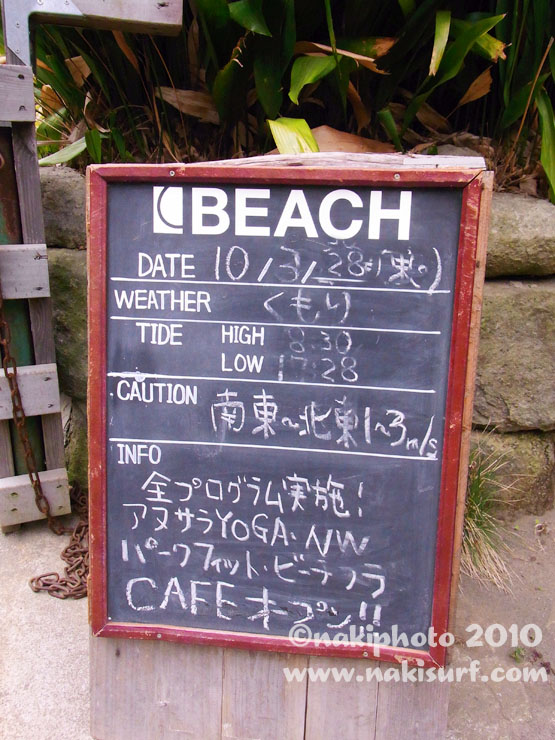 BEACH
DATE 10/3/28
WEATHER くもり
TIDE HIGH 8:30
LOW 17:28
CAUTION 南東〜北東1〜3m/s
INFO
全プログラム実施!
アヌサラYOGA・NW
パークフィット・ビーチフラ
CAFEオープン!!
©nakiphoto 2010
www.nakisurf.com